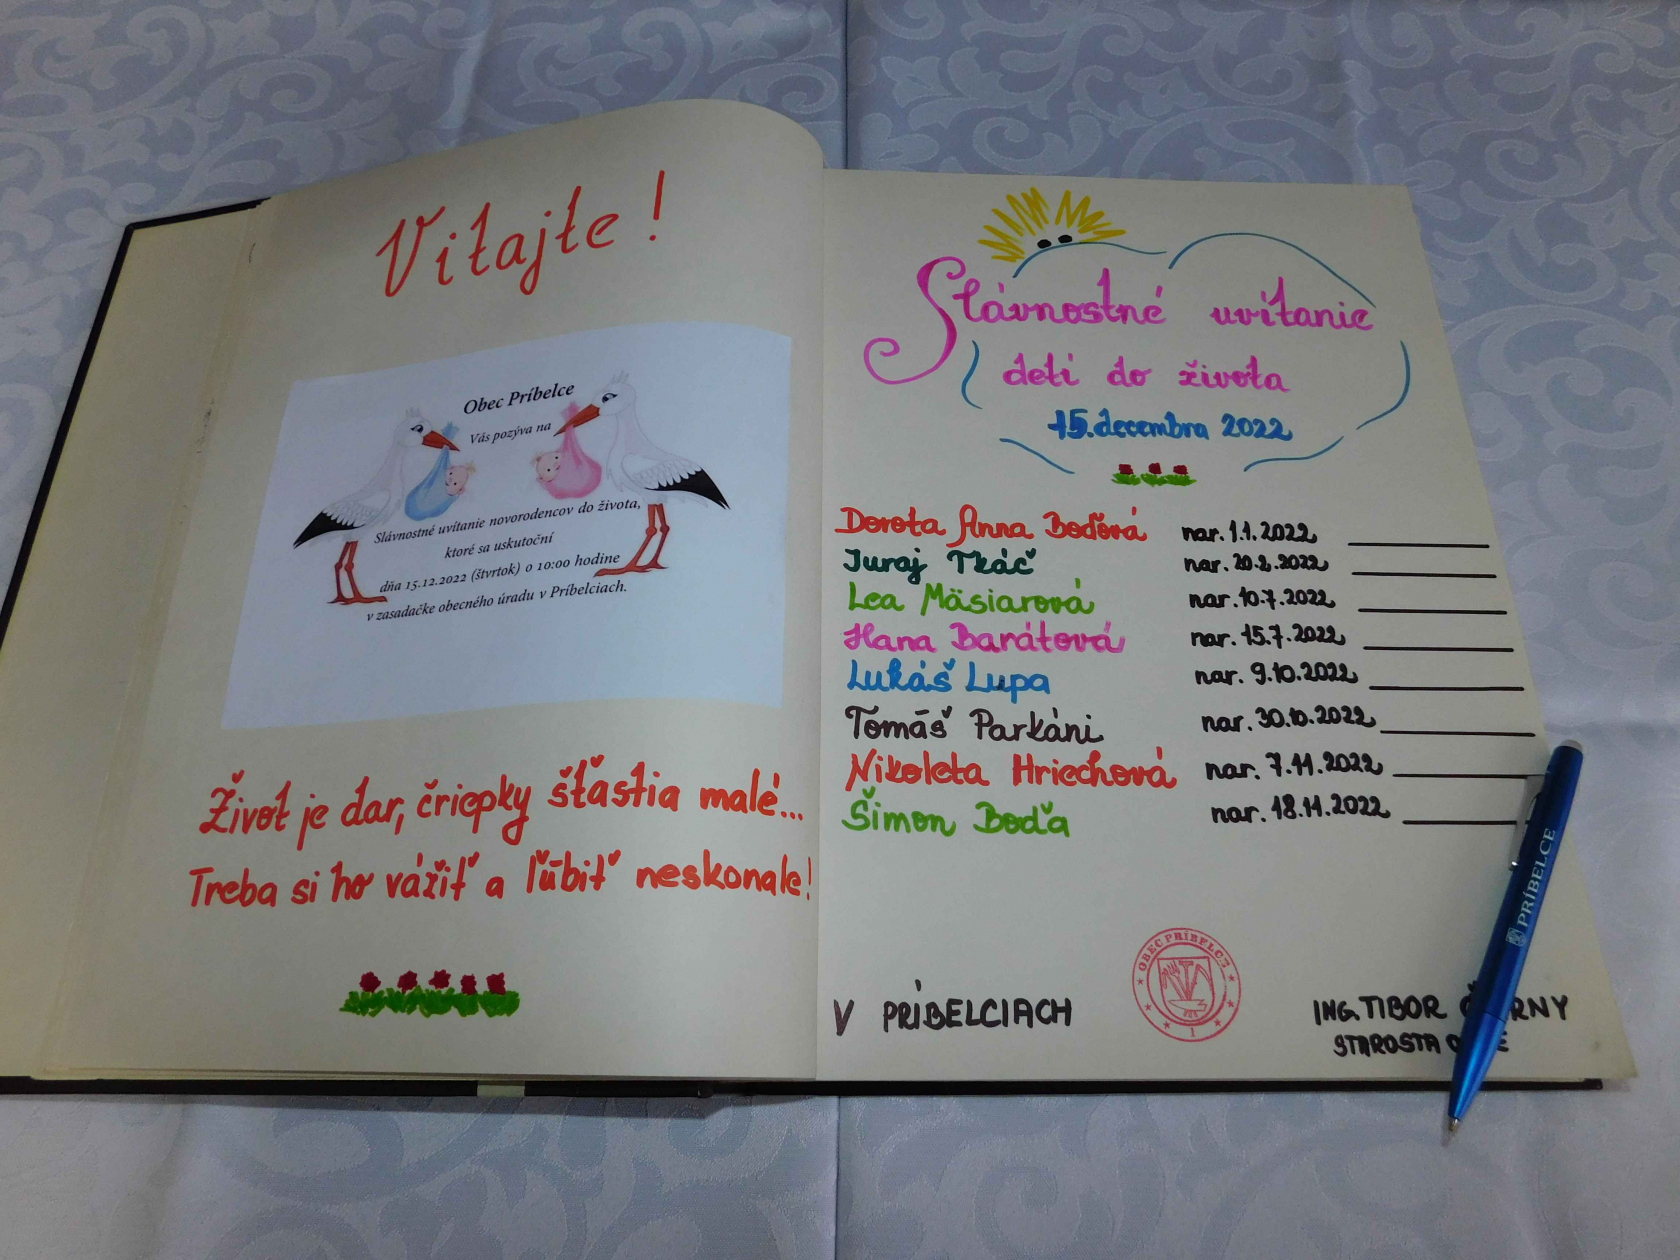 Vitajte!
Obec Príbelce
Vás pozýva na
Slávnostné uvítanie novorodencov do života,
ktoré sa uskutoční
dňa 15.12.2022 (štvrtok) o 10:00 hodine
v zasadačke obecného úradu v Príbelciach.
Život je dar, čriepky šťastia malé...
Treba si ho vážiť a ľúbiť neskonale!
Slávnostné uvítanie
detí do života
15.decembra 2022
Dorota Anna Boďová nar. 1.1.2022
Juraj Tkáč nar. 20.2.2022
Lea Mäsiarová nar. 10.7.2022
Hana Barátová nar. 15.7.2022
Lukáš Lupa nar. 9.10.2022
Tomáš Parkáni nar. 30.10.2022
Nikoleta Hriechová nar. 7.11.2022
Šimon Boďa nar. 18.11.2022
OBEC PRÍBELCE
1
V PRÍBELCIACH
ING. TIBOR
STAROSTA
PRÍBELCE